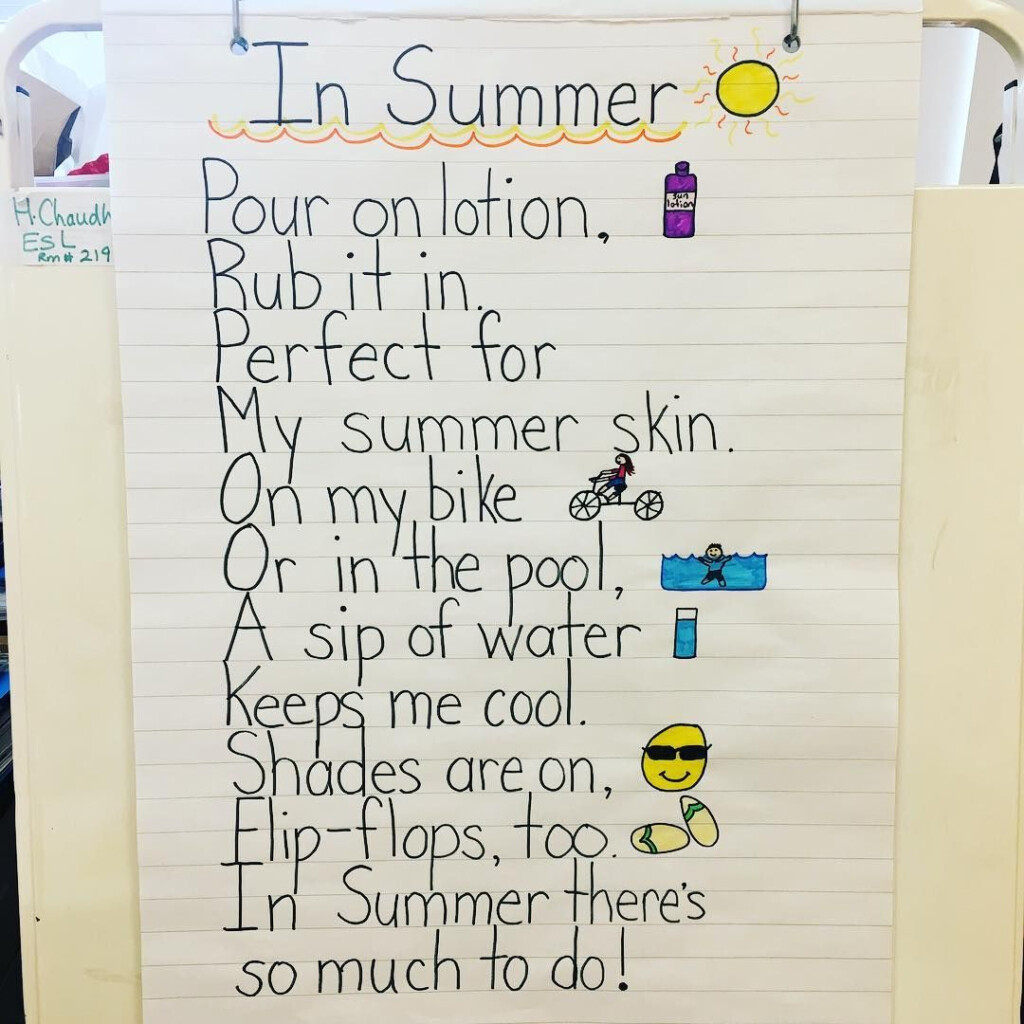 In Summer
Pour on lotion,
sun
lotion
Rub it in.
Perfect for
My summer skin.
On my bike
Or in the pool,
A sip of water
Keeps me cool.
Shades are on,
Flip-flops, too.
In Summer there's
so much to do!
H. Chaudh
ESL
Rm# 219